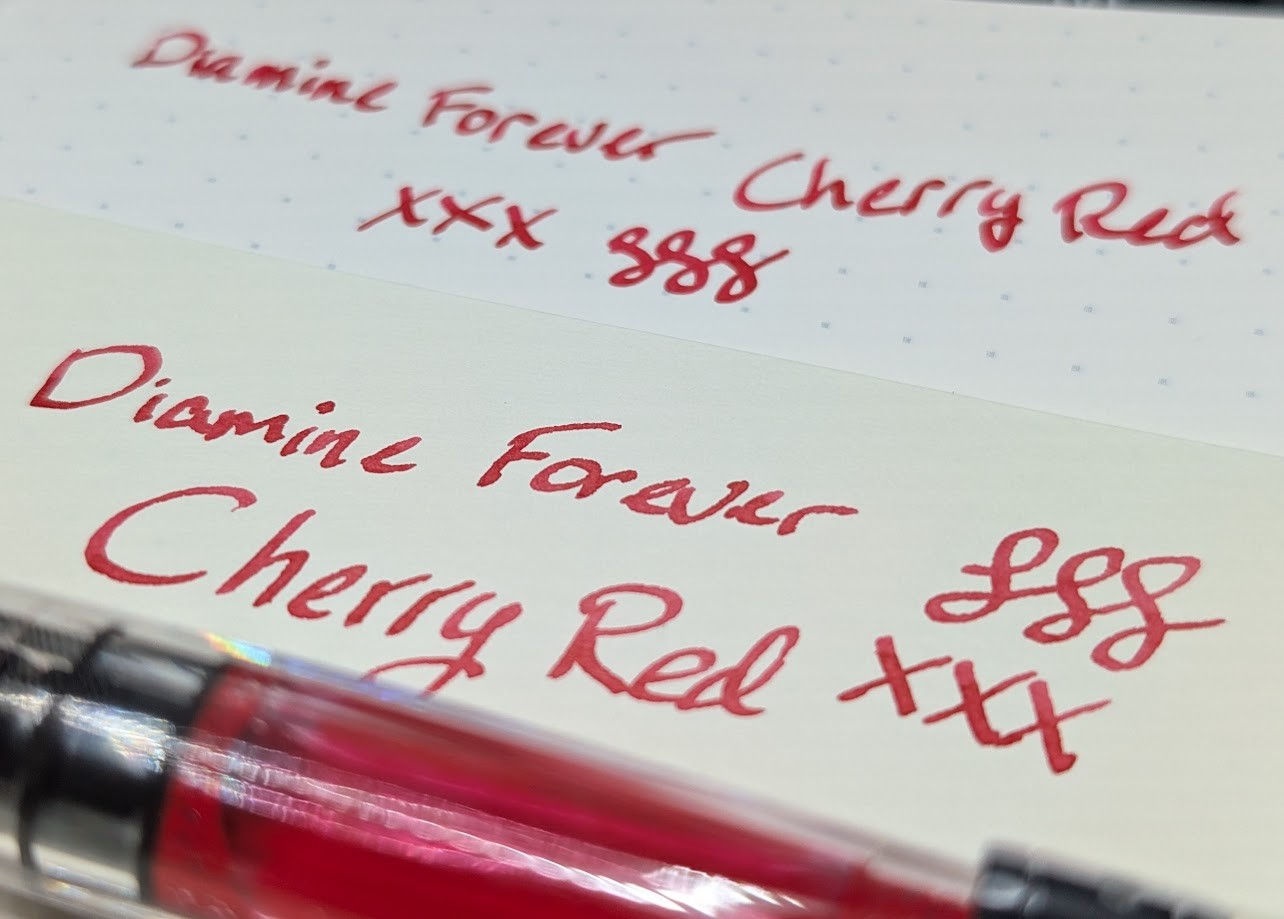 Diamine Forever Cherry Red
xxx ggg
Diamine Forever
Cherry Red
ggg
xxx